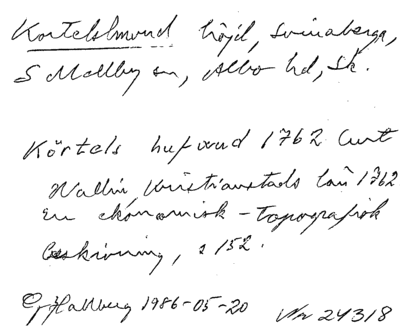 Kortelshuvud höjd, Svinaberga,
S Mellby sn, Albo hd, Sk.
Körtels hufvud 1762 Curt
Wallin, Kristianstads län 1762
En ekonomisk-topografisk
beskivning, s 152.
Hallberg 1986-05-20 Nr 24318